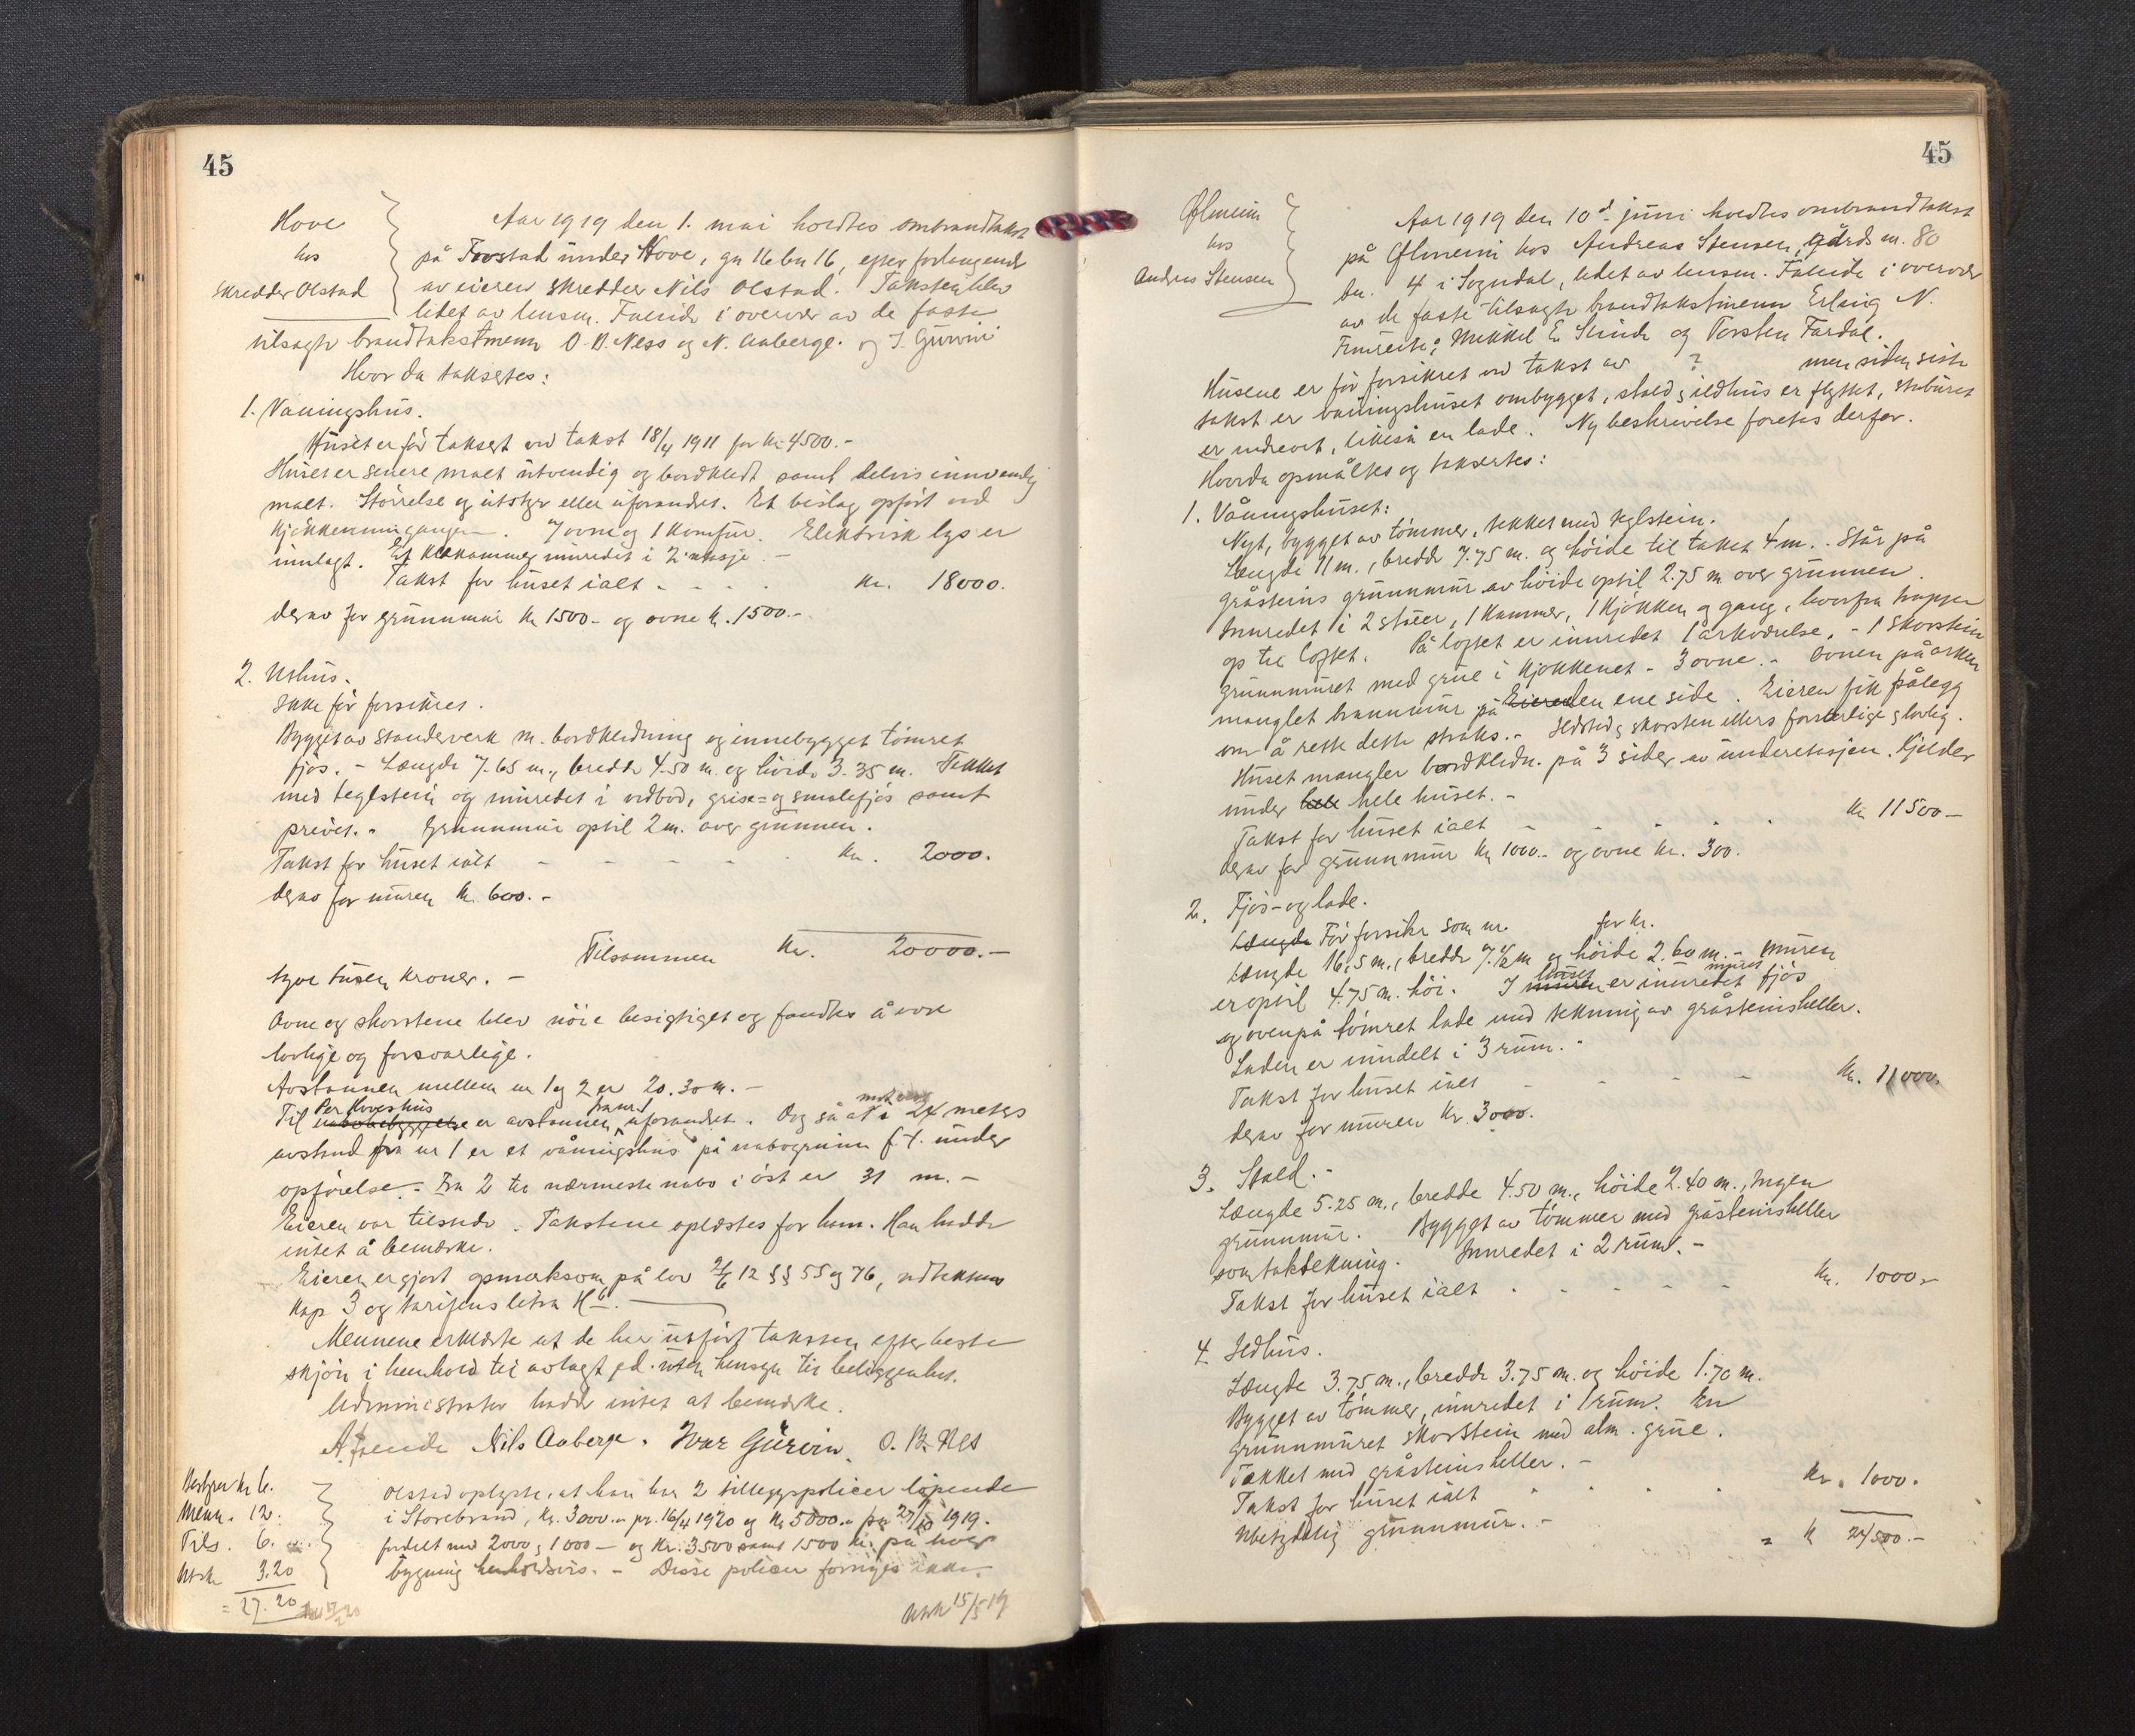 45
Hove
hos
skredder Olstad
Aar 1919 den 1. mai holdtes ombrandtakst
på Frostad under Hove, gn 16 bn 16, efter forlangende
av eieren skredder Nils Olstad. Taksten blev
ledet av lensm. Faleide i overvær av de faste
tilsagte brandtakstmenn O. B. Ness og N. Aaberge. og I. Gurvin
Hvor da taksertes:
1. Vaaningshus.
Huset er før taksert ved takst 18/4 1911 for kr 4500.-
Huset er senere malt utvendig og bordkledt samt delvis innvendig
malt. Størrelse og utstyr eller uforandret. Et beslag opført ved
kjøkkeninngangen. 7 ovne og 1 komfur. Elektrisk lys er
innlagt. Et klekammer innredet i 2 etasje. -
Takst for huset ialt - - - - kr. 18000.
derav for grunnmur kr 1500.- og ovne kr. 1500.-
2. Uthus.
Ikke før forsikret.
Bygget av standerverk m. bordkledning og innebygget tømret
fjøs. - Længde 7.65 m., bredde 4.50 m. og høide 3.35 m. Tekket
med teglstein og innredet i vedbod, grise= og smalefjøs samt
privet. - Grunnmur optil 2 m. over grunnen.
Takst for huset ialt - - - - kr. 2000.
derav for muren kr. 600.-
Tilsammen kr. 20000.-
tyve tusen kroner. -
Ovne og skorstene blev nøie besigtiget og fandtes å være
lovlige og forsvarlige.
Avstannen mellem nr 1 og 2 er 20.30 m. -
Per Hoves hus fra nr 1 mot
Til nabobebyggelse er avstannen uforandret. Og så at i 24 meters
avstand fra nr 1 er et våningshus på nabogrunn f.t. under
opførelse. - Fra 2 til nærmeste nabo i øst er 31 m. -
Eieren var tilstede. Takstene oplæstes for ham. Han hadde
intet å bemerke.
Eieren er gjort opmerksom på lov 21/6 12 §§ 55 og 76,
kap 3 og tarifens litra H
Mennene erklærte at de har utført taksten efter beste
skjøn i henhold til avlagt ed. uten hensyn til beliggenhet.
Administrator hadde intet at bemerke.
A. Faleide Nils Aaberge. Ivar Gurvin. O. B. Nes
Bestyrer kr 6.
Menn. 12.
Tils. 6.
Utsk 3.20
= 27.20
Olstad oplyste, at han har 2 tilleggspoliser løpende
i Storebrand, kr. 3000.- pr. 16/4 1920 og kr 5000.- pr 27/10 1919.
fordelt med 2000 og 1000 - og kr. 3500 samt 1500 kr. på hver
bygning henholdsvis. - Disse poliser fornyes ikke.
Utsk 15/5 19
45
Ølmeim
hos
Andreas Stensen
Aar 1919 den 10d juni holdtes ombrandtakst
på Ølmeim hos Andreas Stensen, gårds nr. 80
bn. 4 i Sogndal, ledet av lensm. Faleide i overvær
av de faste tilsagte brandtakstmenn Erling N.
Fimreite, Mikkel E. Slinde og Torsten Fardal.
Husene er før forsikret ved takst av ? men siden siste
takst er vaaningshuset ombygget, stald og ildhus er flyttet, stabüret
er nedrevet, likeså en lade. Ny beskrivelse foretes derfor.
Hvorda opmåltes og taksertes:
1. Våningshuset:
Nyt, bygget av tømmer, tekket med teglstein.
Længde 11 m., bredde 7.75 m. og høide til taket 4 m. - Står på
gråsteins grunnmur av høide optil 2.75 m over grunnen.
Innredet i 2 stuer, 1 kammer, 1 kjøkken og gang, hvorfra trapper
op til loftet. På loftet er innredet 1 arkværelse. - 1 skorstein
grunnmuret med grue i kjøkkenet - 3 ovne. - Ovnen på arken
manglet brannmur på Eieren den ene side. Eieren fik pålegg
om å rette dette straks. - Ildsted og skorsten ellers forsvarlige og lovlig.
Huset mangler bordkledn. på 3 sider av underetasjen. Kjelder
under hele hele huset. -
Takst for huset ialt - - - - kr 11500 -
derav for grunnmur kr 1000.- og ovne kr. 300.
2. Fjøs- og lade.
Længde Før forsikr som nr. for kr.
Længde 16,5 m., bredde 7.1/2 m og høide 2.60 m. - Muren
er optil 4.75 m. høi. I muren huset er innredet muret fjøs
og ovenpå tømret lade med tekning av gråsteinsheller.
Laden er inndelt i 3 rum. -
Takst for huset ialt - - - - kr. 11000.
derav for muren kr. 3000.
3. Stald. -
Længde 5.25 m., bredde 4.50 m., høide 2.40 m., Ingen
grunnmur. Bygget av tømmer med gråsteinsheller
som taktekning. Innredet i 2 rum. -
Takst for huset ialt - - - - kr. 1000.-
4 Ildhus.
Længde 3.75 m., bredde 3.75 m. og høide 1.70 m.
Bygget av tømmer, innredet i 1 rum. En
grunnmuret skorstein med alm. grue.
Tækket med gråsteinsheller. -
Takst for huset ialt - - - kr. 1000.
Ubetydelig grunnmur. -
= kr 24500.-